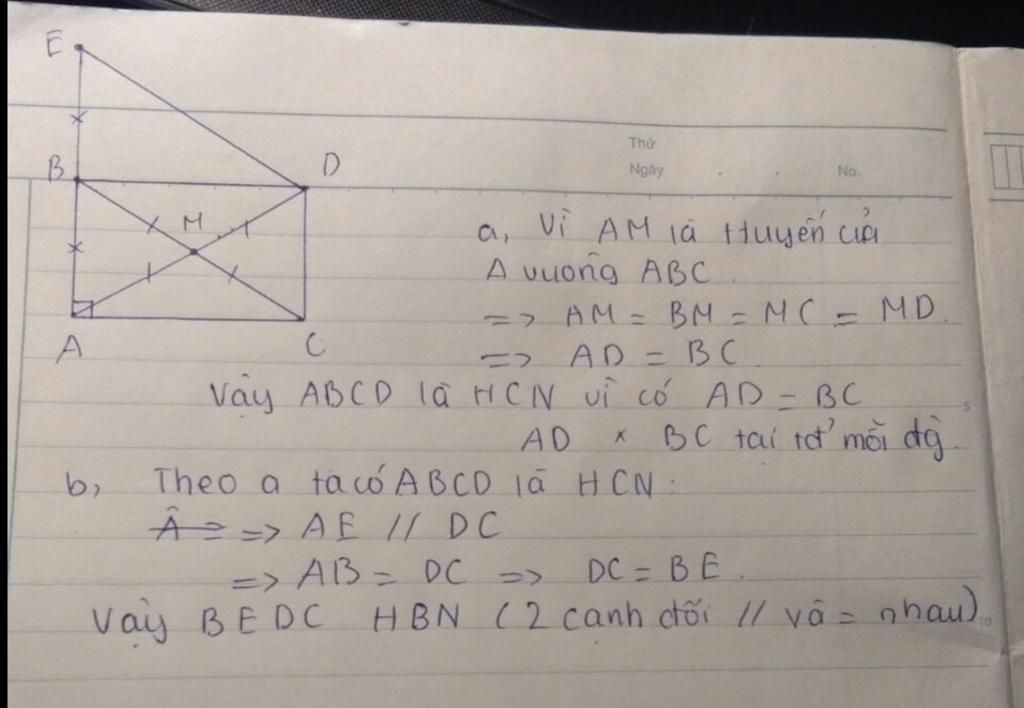 E
B
D
M
A
C
Thứ
Ngày
No.
a, Vì AM là tuyến của
Δ vuông ABC.
=> AM = BM = MC = MD.
=> AD = BC.
Vậy ABCD là HCN vì có AD = BC
AD × BC tại tđ mỗi đg.
5
b, Theo a ta có ABCD là HCN:
Â => => AE // DC
=> AB = DC => DC = BE.
Vậy BEDC HBN (2 cạnh đối // và = nhau)
10